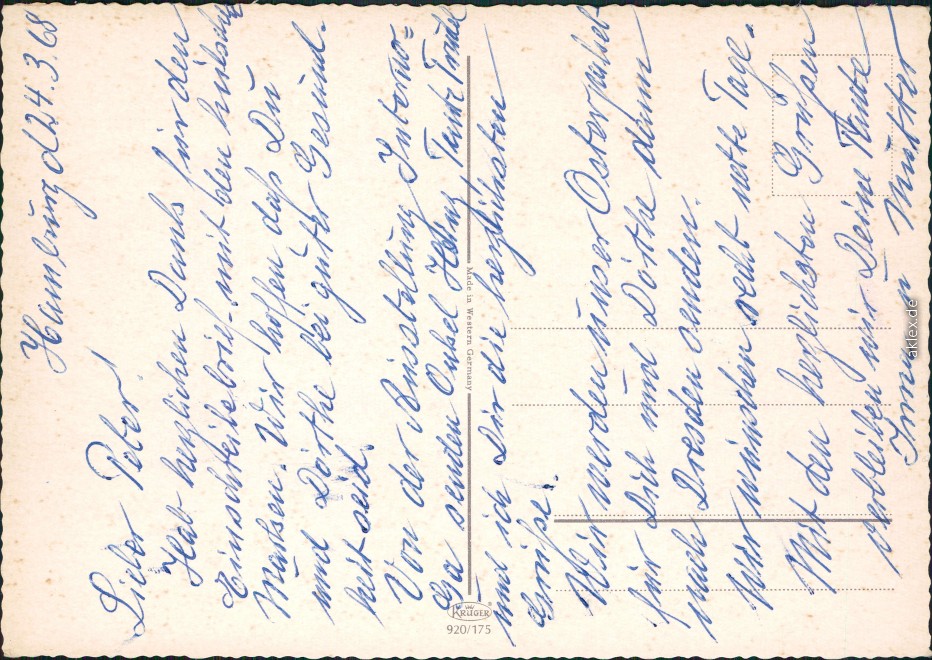 Hamburg d 24.3.68
Lieber Peter!
Hab herzlichen Dank für den
Einschreibebrief mit den hübschen
Marken. Wir hoffen daß Du
und Dörthe bei guter Gesund-
heit seid.
Von der Ausstellung Interna=
Ga senden Onkel Tante Trude
und ich Dir die herzlichsten
Grüße.
Wir werden unser Osterpaket
für Dich und Dörthe dann
nach Dresden senden.
Wir wünschen recht nette Tage.
Mit den herzlichsten Grüßen
verbleiben wir Deine Tante
Irmin Mutter
Made in Western Germany
KRÜGER
920/175
aklex.de